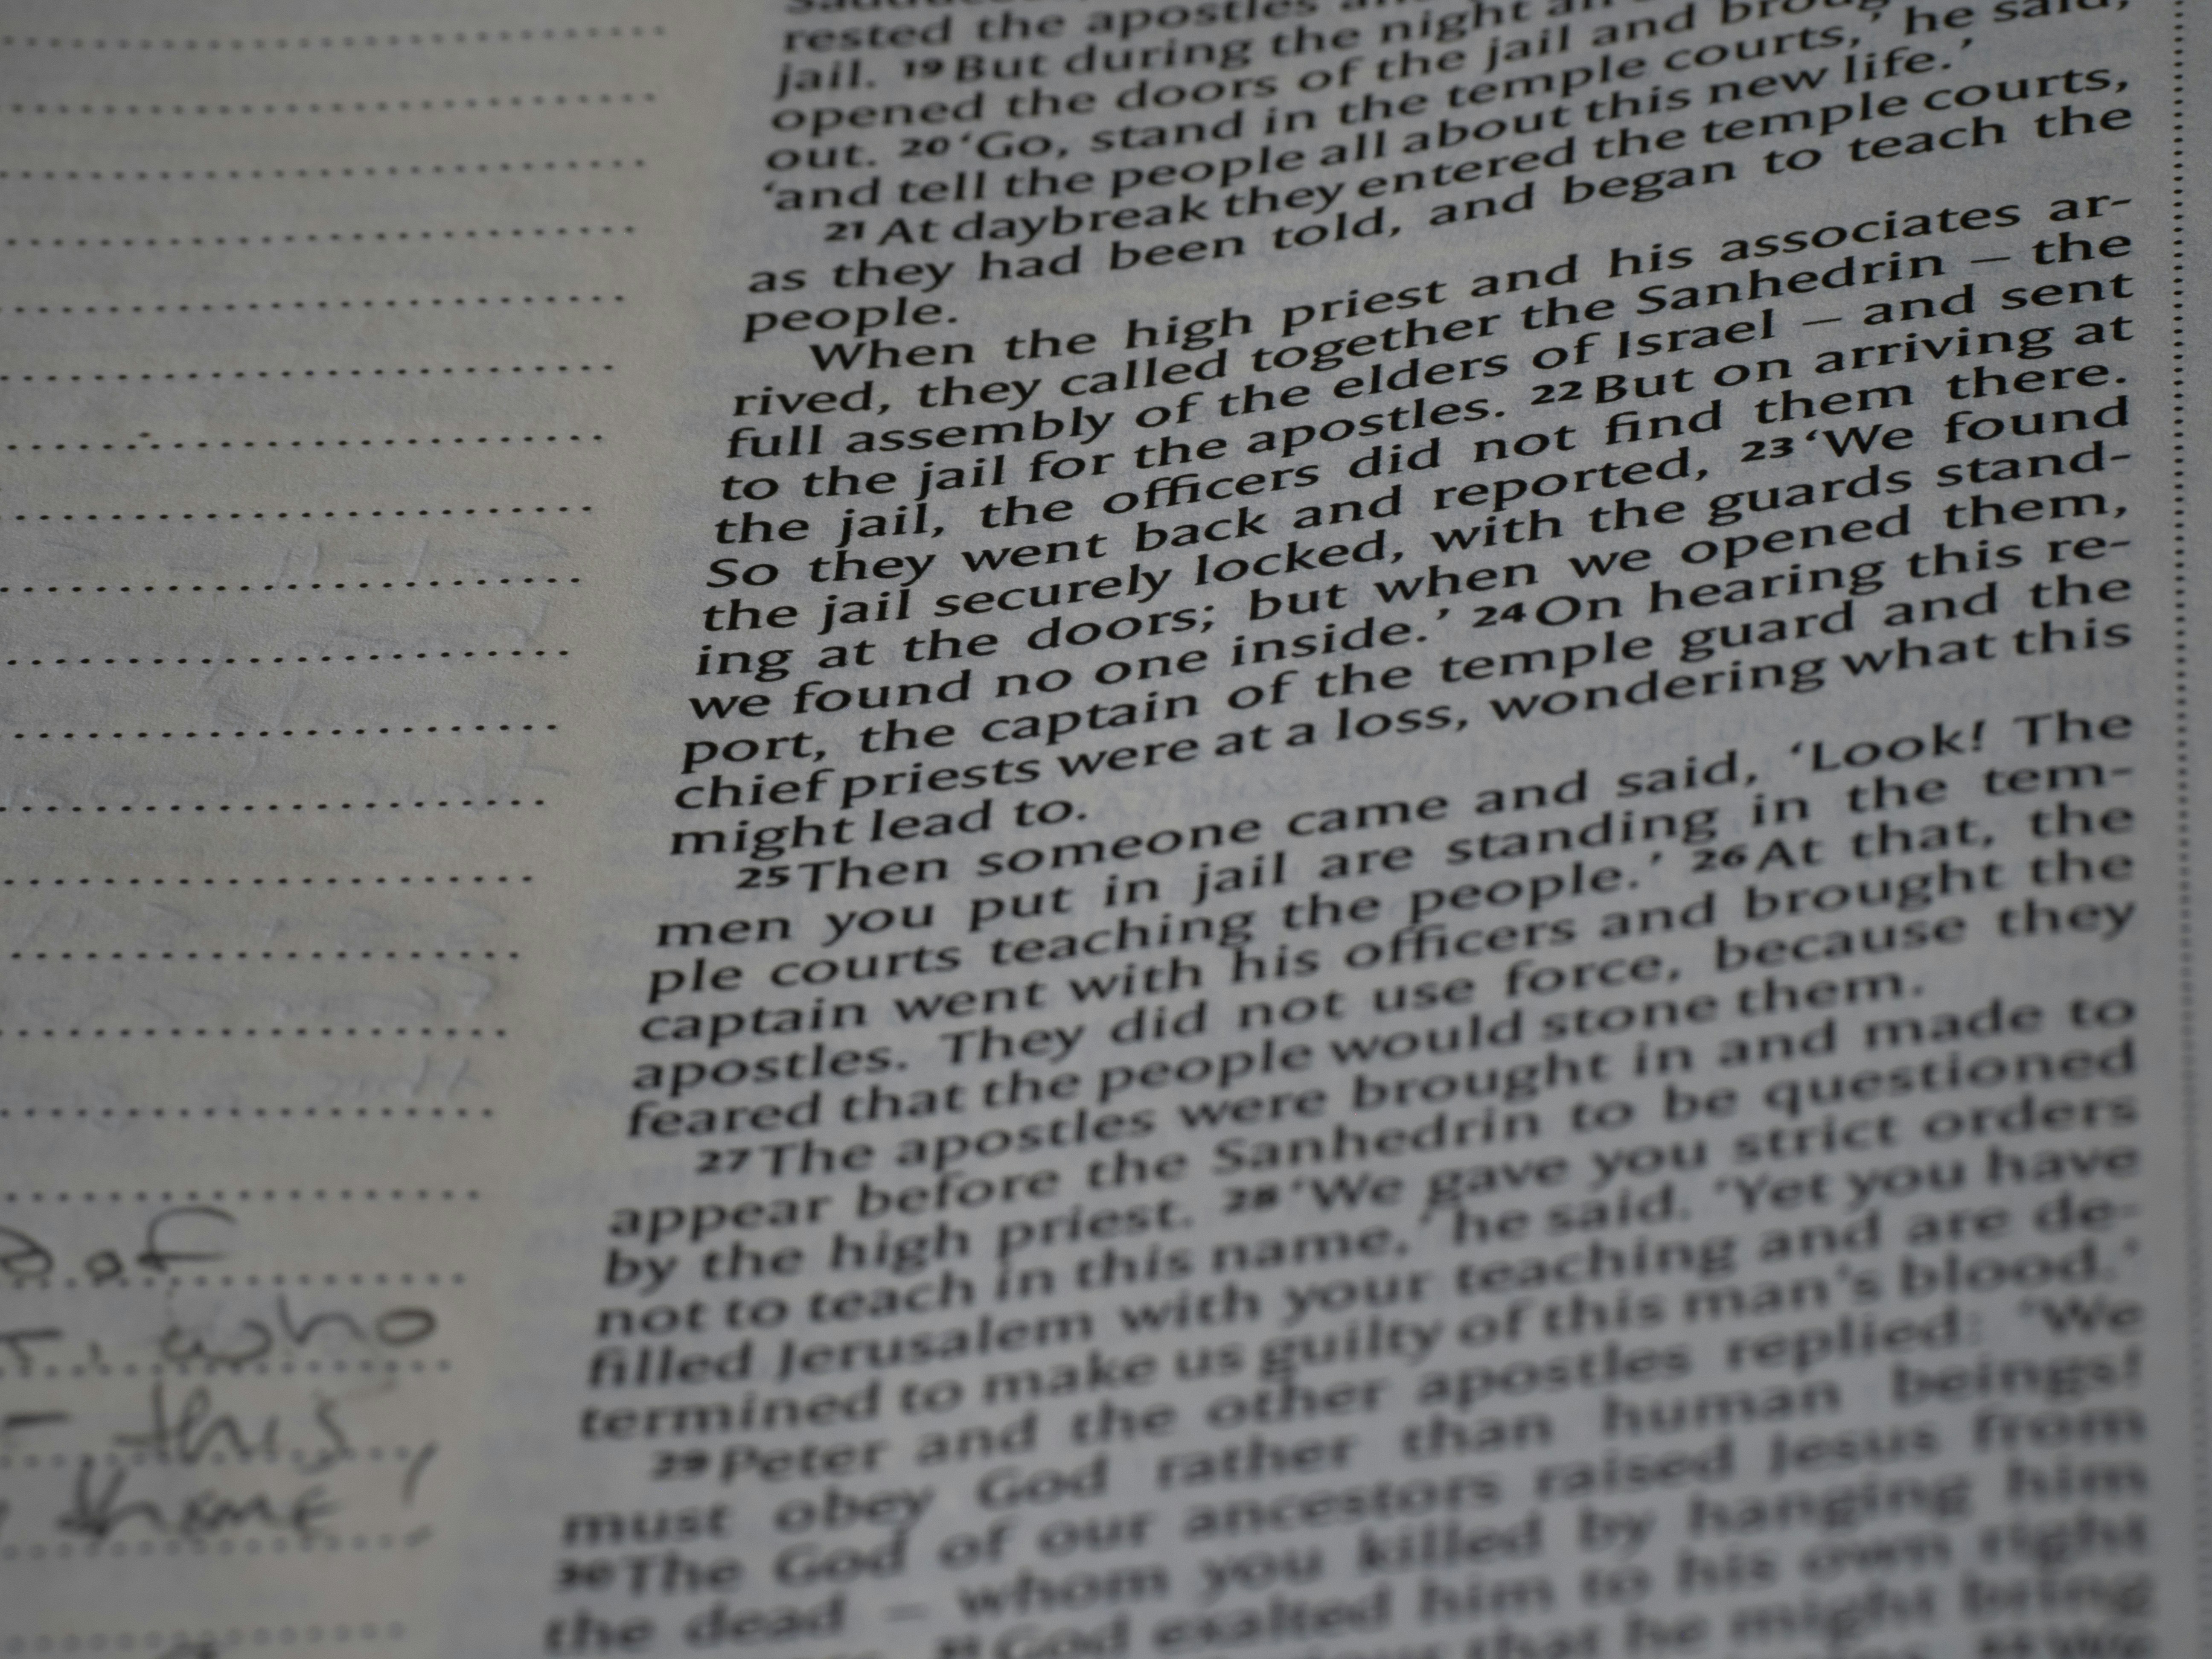 rested the apostles
jail. 19 But during the night
opened the doors of the jail and
out. 20 ‘Go, stand in the temple courts,’ he said,
‘and tell the people all about this new life.’
21 At daybreak they entered the temple courts,
as they had been told, and began to teach the
people.
When the high priest and his associates ar-
rived, they called together the Sanhedrin – the
full assembly of the elders of Israel – and sent
to the jail for the apostles. 22 But on arriving at
the jail, the officers did not find them there.
So they went back and reported, 23 ‘We found
the jail securely locked, with the guards stand-
ing at the doors; but when we opened them,
we found no one inside.’ 24 On hearing this re-
port, the captain of the temple guard and the
chief priests were at a loss, wondering what this
might lead to.
25 Then someone came and said, ‘Look! The
men you put in jail are standing in the tem-
ple courts teaching the people.’ 26 At that, the
captain went with his officers and brought the
apostles. They did not use force, because they
feared that the people would stone them.
27 The apostles were brought in and made to
appear before the Sanhedrin to be questioned
by the high priest. 28 ‘We gave you strict orders
not to teach in this name,’ he said. ‘Yet you have
filled Jerusalem with your teaching and are de-
termined to make us guilty of this man’s blood.’
29 Peter and the other apostles replied: ‘We
must obey God rather than human beings!
30 The God of our ancestors raised Jesus from
the dead – whom you killed by hanging him
31 God exalted him to his own right
that he might bring
We
of
who
– this,